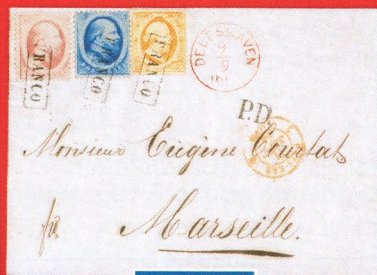 FRANCO FRANCO FRANCO
DELFSHAVEN
P.D.
Monsieur Eugène Courtat
Marseille.